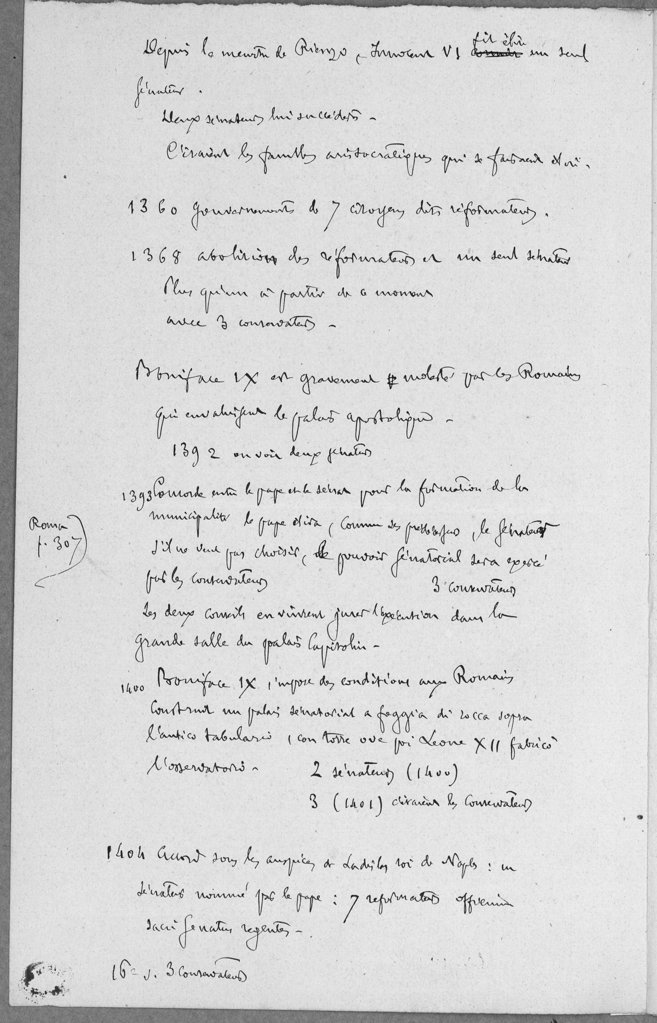 Depuis le meurtre de Rienzo, Innocent VI fit élire un seul
sénateur.
Deux sénateurs lui succédèrent -
C'étaient les familles aristocratiques qui se faisaient élire.
1360 gouvernements de 7 citoyens dits réformateurs.
1368 abolition des réformateurs et un seul sénateur
Plus qu'un à partir de ce moment
avec 3 conservateurs -
Boniface IX est gravement molesté par les Romains
qui envahissent le palais apostolique -
1392 on voit deux sénateurs
1393 Concorde entre le pape et le sénat pour la formation de la
municipalité le pape élira, comme ses prédécesseurs, le sénateur
s'il ne veut pas choisir, le pouvoir sénatorial sera exercé
par les conservateurs 3 conservateurs
Roma
p. 307
Les deux conseils en vinrent jurer l'exécution dans la
grande salle du palais Capitolin -
1400 Boniface IX impose des conditions aux Romains
construit un palais sénatorial a foggia di rocca sopra
l'antico tabulario, con torre ove poi Leone XII fabricò
l'osservatorio - 2 sénateurs (1400)
3 (1401) c'étaient les Conservateurs
1404 accord sous les auspices de Ladislas roi de Naples : un
sénateur nommé par le pape : 7 réformateurs
sacri Senatus regentes -
16e s. 3 conservateurs